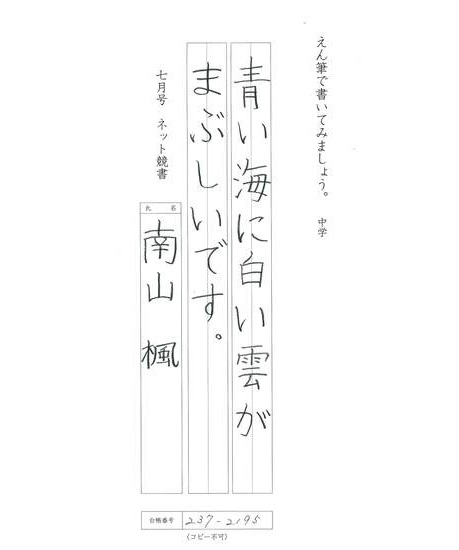 えん筆で書いてみましょう。 中学
青い海に白い雲が
まぶしいです。
七月号 ネット競書
氏名
南山 楓
合格番号 237-2195
(コピー不可)